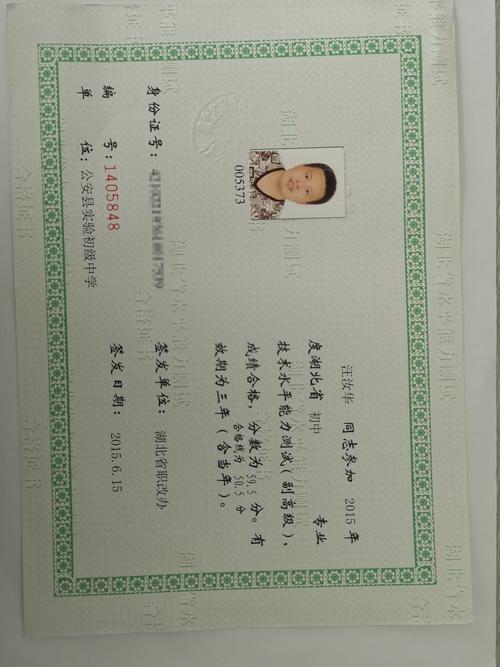 005373
身份证号：
编 号：1405848
单 位：公安县实验初级中学
汪汝华 同志参加 2015 年
度湖北省 初中 专业
技术水平能力测试（副高级），
成绩合格，分数为 分。有
合格线为 50.5 分
效期为三年（含当年）。
签发单位：湖北省职改办
签发日期：2015.6.15
湖北省水平能力测试
合格证书